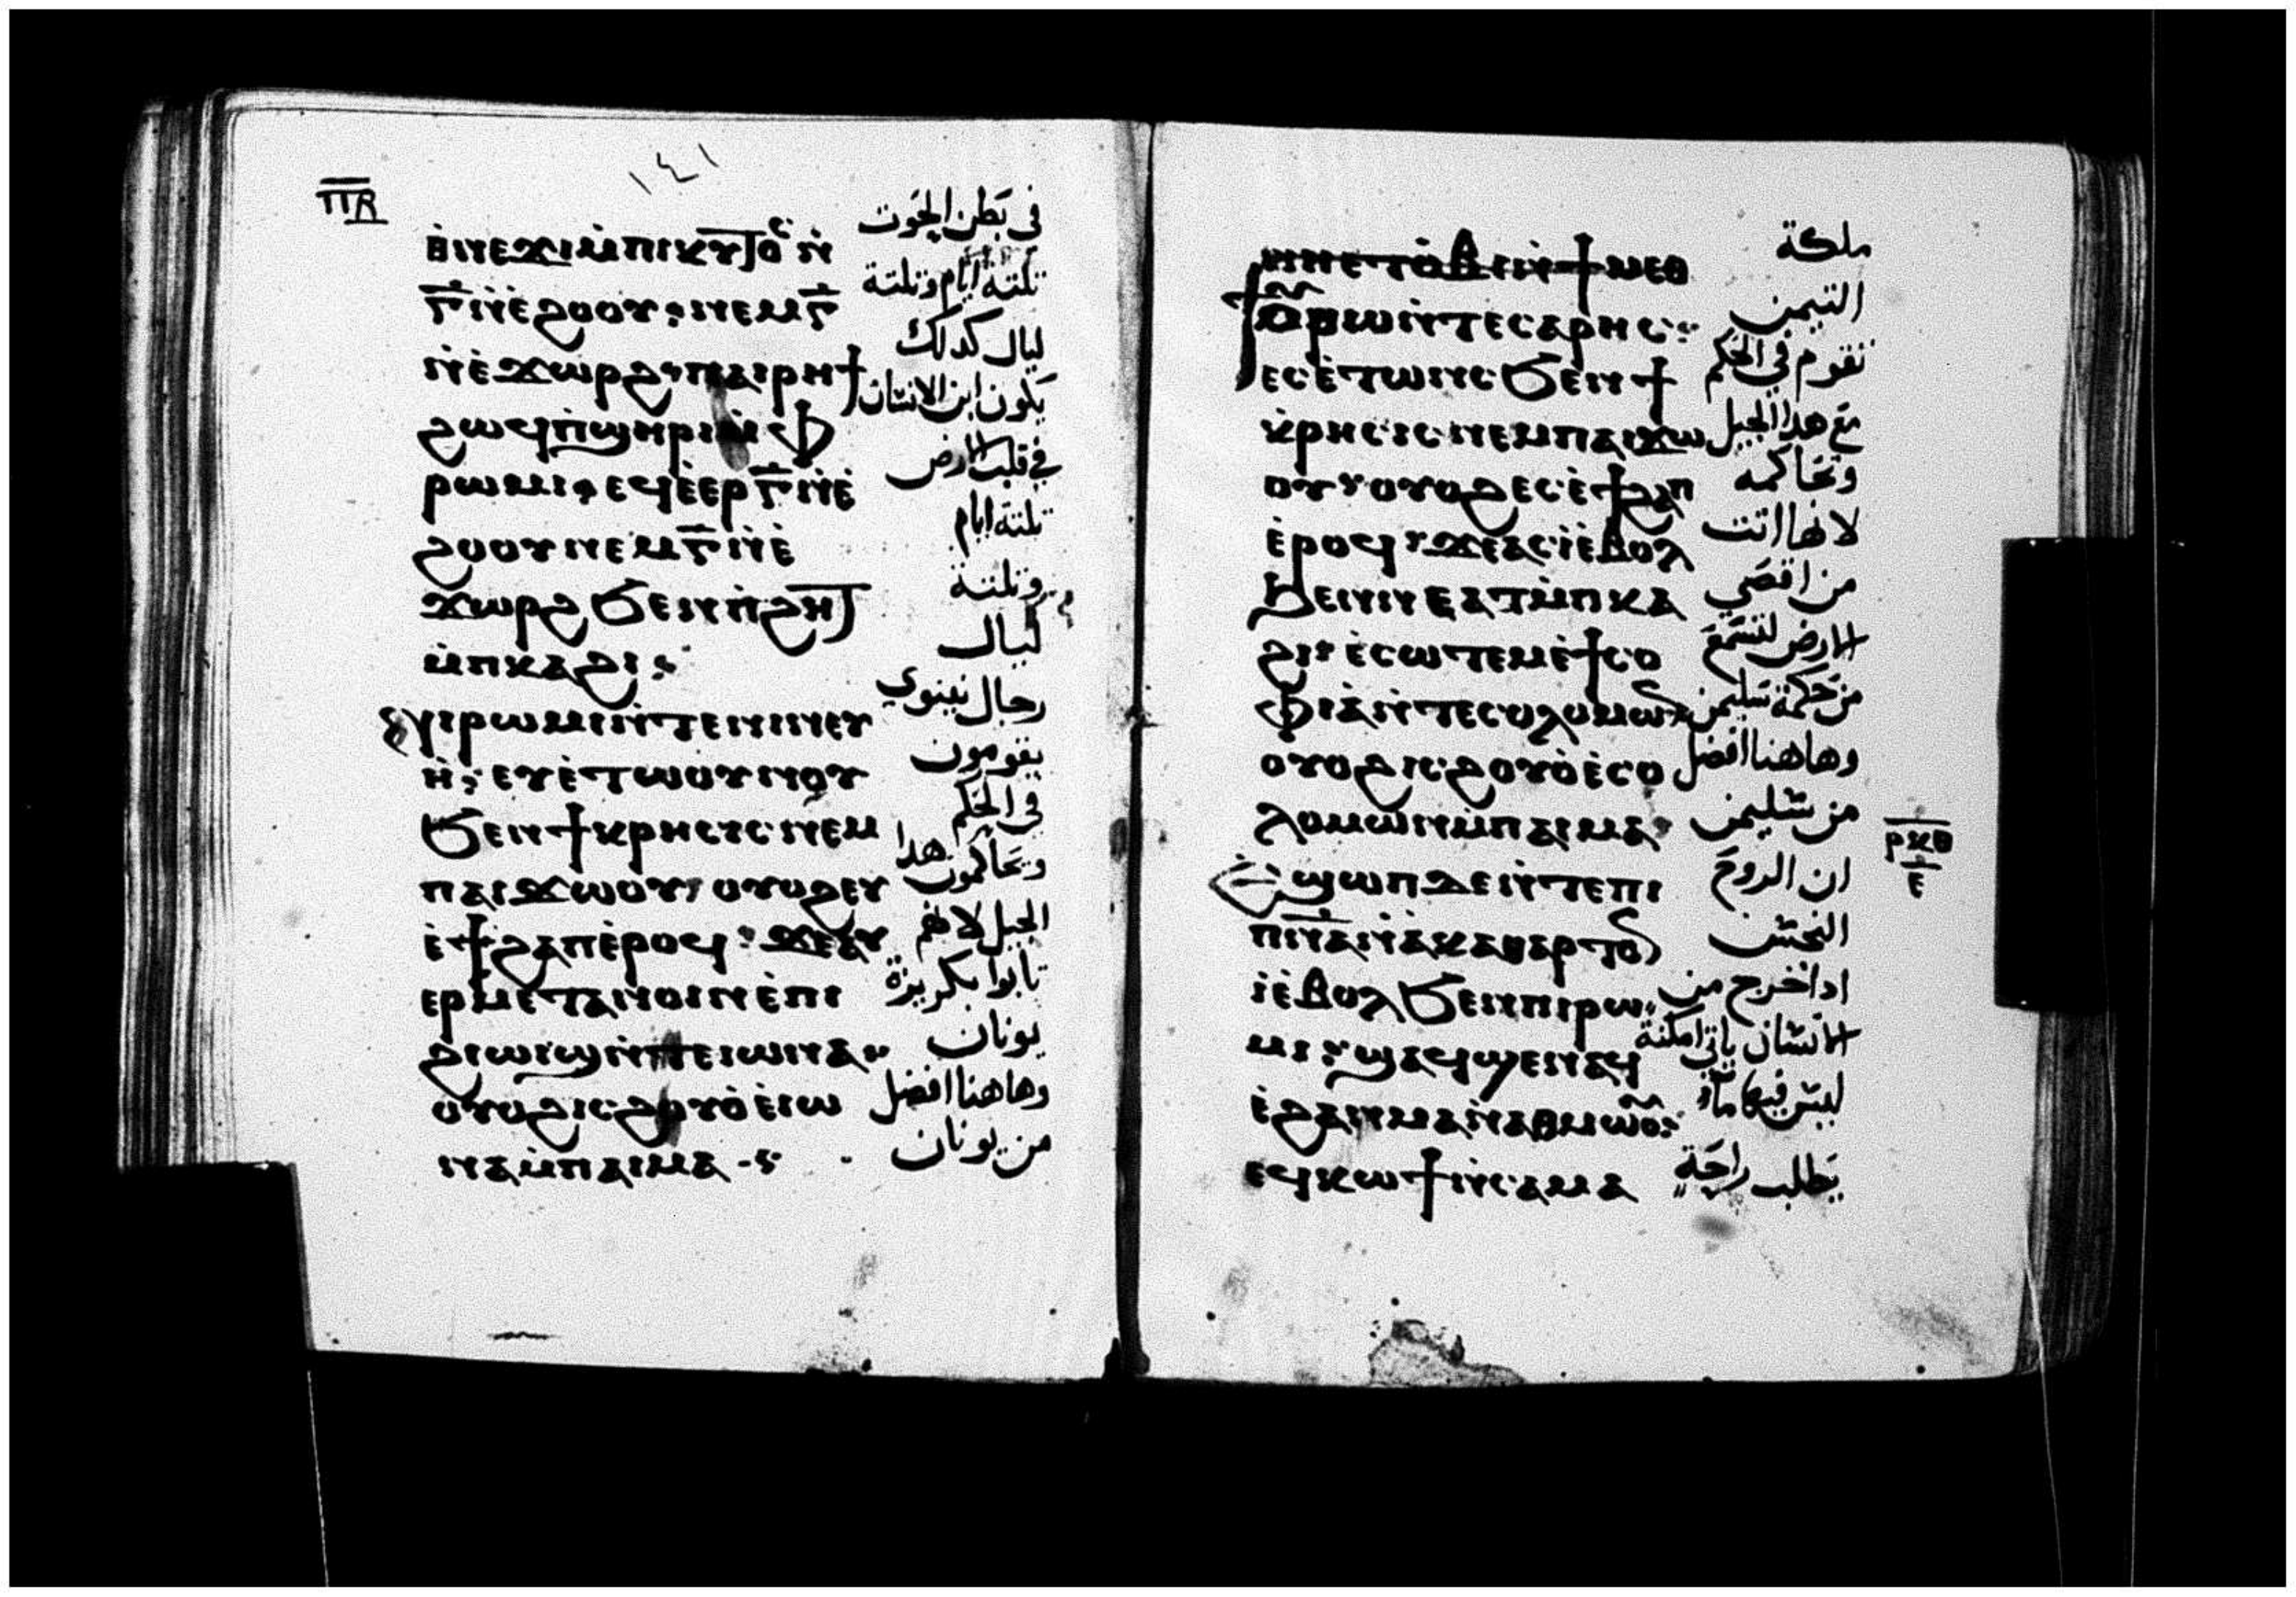 ⲠⲂ
١٤١
ⲑⲓⲛⲉϫⲓⲙ̀ⲡⲓⲕⲩⲧⲟⲥ ⲛ̀
ⲅ̅ ⲛ̀ⲉ̀ϩⲟⲟⲩ: ⲛⲉⲙ ⲅ̅
ⲛ̀ⲉ̀ϫⲱⲣϩ: ⲡⲁⲓⲣⲏϯ
ϩⲱϥ ⲡ̀ϣⲏⲣⲓ ⲙ̀ⲫ
ⲣⲱⲙⲓ: ⲉϥⲉ̀ⲉⲣ ⲅ̅ ⲛ̀ⲉ̀
ϩⲟⲟⲩ ⲛⲉⲙ ⲅ̅ ⲛ̀ⲉ̀
ϫⲱⲣϩ ϧⲉⲛ ⲡ̀ϩⲏⲧ
ⲙ̀ⲡⲕⲁϩⲓ:
ϩⲁⲛⲣⲱⲙⲓ ⲛ̀ⲧⲉ ⲛⲓⲛⲉⲩ
ⲏ̀: ⲉⲩⲉ̀ⲧⲱⲟⲩⲛⲟⲩ
ϧⲉⲛ ϯⲕⲣⲏⲥⲓⲥ ⲛⲉⲙ
ⲡⲁⲓϫⲱⲟⲩ: ⲟⲩⲟϩ ⲉⲩ
ⲉ̀ϯϩⲁⲡ ⲉ̀ⲣⲟϥ: ϫⲉ ⲁⲩ
ⲉⲣⲙⲉⲧⲁⲛⲟⲓⲛ ⲉ̀ⲡⲓ
ϩⲓⲱⲓϣ ⲛ̀ⲧⲉ ⲓⲱⲛⲁ:
ⲟⲩⲟϩ ⲓⲥ ϩⲟⲩⲟ̀ ⲉ̀ⲓⲱ
ⲛⲁ ⲙ̀ⲡⲁⲓⲙⲁ
في بطن الحوت
تلتة ايام وتلتة
ليال كدلك
يكون ابن الانسان
في قلب الارض
تلتة ايام
وتلتة
ليال
رجال نينوي
يقومون
في الحكم
وتحاكمون هدا
الجيل لانهم
تابوا بكريزة
يونان
وهاهنا افضل
من يونان
ϯⲟⲩⲣⲱ ⲛ̀ⲧⲉ ⲥⲁⲣⲏⲥ:
ⲉⲥⲉ̀ⲧⲱⲛⲥ ϧⲉⲛ ϯ
ⲕⲣⲏⲥⲓⲥ ⲛⲉⲙ ⲡⲁⲓϫⲱ
ⲟⲩ: ⲟⲩⲟϩ ⲉⲥⲉ̀ϯϩⲁⲡ
ⲉ̀ⲣⲟϥ: ϫⲉ ⲁⲥⲓ̀ ⲉ̀ⲃⲟⲗ
ϧⲉⲛ ⲛⲉⲁⲧ ⲙ̀ⲡⲕⲁ
ϩⲓ: ⲉ̀ⲥⲱⲧⲉⲙ ⲉ̀ϯⲥⲟ
ⲫⲓⲁ̀ ⲛ̀ⲧⲉ ⲥⲟⲗⲟⲙⲱⲛ
ⲟⲩⲟϩ ⲓⲥ ϩⲟⲩⲟ̀ ⲉ̀ⲥⲟ
ⲗⲟⲙⲱⲛ ⲙ̀ⲡⲁⲓⲙⲁ:
ⲉϣⲱⲡ ⲇⲉ ⲛ̀ⲧⲉ ⲡⲓ
ⲡ̅ⲛ̅ⲁ̅ ⲛ̀ⲁⲕⲁⲑⲁⲣⲧⲟⲛ
ⲓ̀ ⲉ̀ⲃⲟⲗ ϧⲉⲛ ⲡⲓⲣⲱ
ⲙⲓ: ϣⲁϥϣⲉⲛⲁϥ
ⲉ̀ϩⲁⲛⲙⲁ ⲛ̀ⲁⲑⲙⲱⲟⲩ:
ⲉϥⲕⲱϯ ⲛ̀ⲥⲁ ⲙⲁ
ملكة
التيمن
تقوم في الحكم
مع هدا الجيل
وتحاكمه
لانها اتت
من اقصي
الارض لتسمع
من حكمة سليمن
وهاهنا افضل
من سليمن
ان الروح
النجس
ادا خرج من
الانسان ياتي امكنة
ليس فيها ماء
يطلب راحة
ⲣⲕⲑ
ⲉ